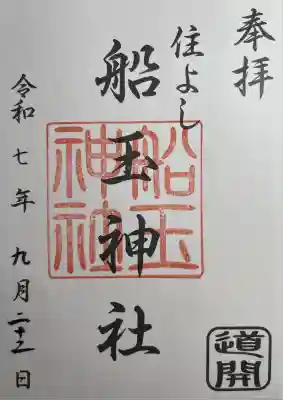 奉拝
住よし
船玉神社
船玉神社
令和七年九月二十三日
道開